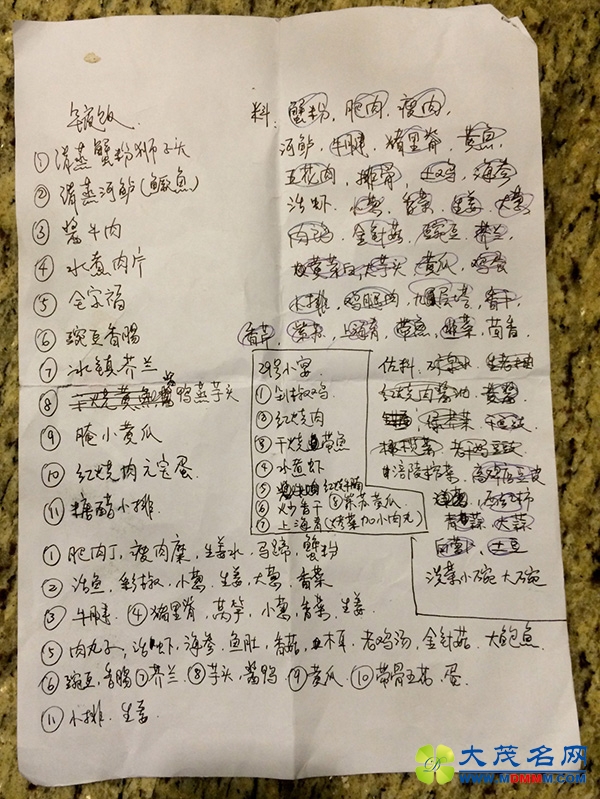 年夜饭
①清蒸蟹粉狮子头
②清蒸河鲈(鳜鱼)
③酱牛肉
④水煮肉片
⑤全家福
⑥豌豆香肠
⑦冰镇芥兰
⑧干烧黄鱼 酱鸭蒸芋头
⑨腌小黄瓜
⑩红烧肉元宝蛋
⑪糖醋小排
料:蟹粉,肥肉,瘦肉,
河鲈,牛腱,猪里脊,黄鱼,
五花肉,排骨,土鸡,海参
活虾,小葱,香菜,生姜,大葱
金针菇,豌豆,芥兰,
大芋头,黄瓜,鸡蛋
小排,鸡腿肉,九层塔,香干,
香芹,紫苏,上海青,带鱼,韭菜,茴香
29号小宴
①剁椒鸡
②红烧肉
③干烧带鱼
④水煮虾
⑤红烧牛腩
⑥炒香干
⑦上海青(炒菜加小肉丸)
⑧紫苏黄瓜
佐料,
红烧肉酱油,黄酱
老鸡豆豉
涪陵榨菜,高碑店豆皮
西红柿
青蒜,大蒜
白萝卜,土豆
洗菜小碗 大碗
①肥肉丁,瘦肉糜,生姜水,马蹄,蟹粉
②活鱼,彩椒,小葱,生姜,大葱,香菜
③牛腱.④猪里脊,莴笋,小葱,香菜,生姜
⑤肉丸子,活虾,海参,鱼肚,香菇,木耳,老鸡汤,金针菇.大鲍鱼
⑥豌豆,香肠⑦芥兰.⑧芋头,酱鸭.⑨黄瓜.⑩带骨五花.蛋.
⑪小排.生姜
大茂名网
WWW.MDMMM.COM